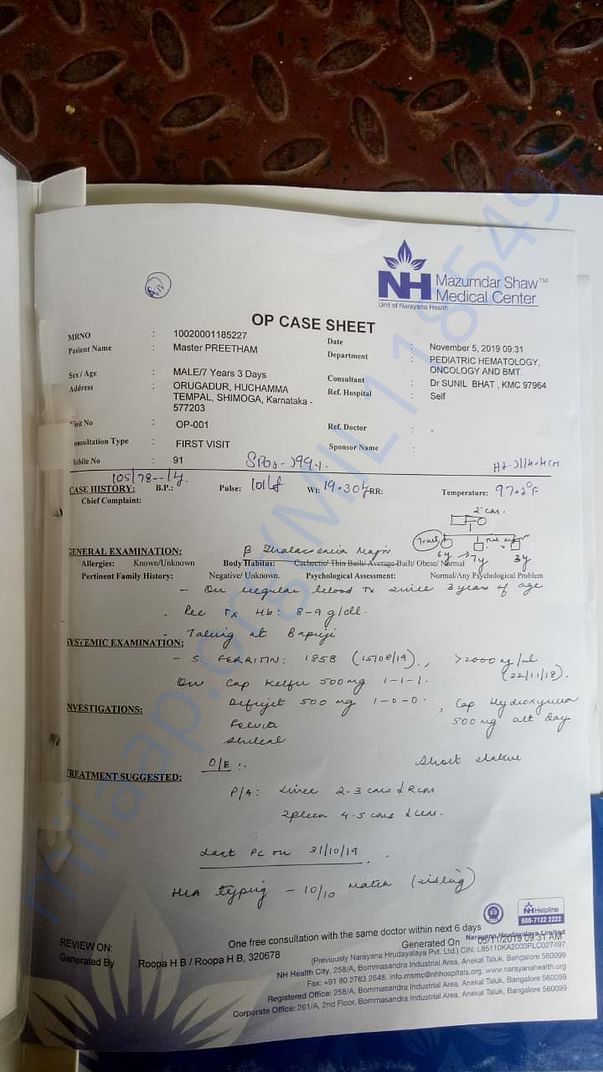 NH Mazumdar Shaw™
Medical Center
Unit of Narayana Health
OP CASE SHEET
MRNO : 10020001185227
Date : November 5, 2019 09:31
Patient Name : Master PREETHAM
Department : PEDIATRIC HEMATOLOGY, ONCOLOGY AND BMT.
Sex / Age : MALE/7 Years 3 Days
Consultant : Dr SUNIL BHAT , KMC 97964
Address : ORUGADUR, HUCHAMMA TEMPAL, SHIMOGA, Karnataka - 577203
Ref. Hospital : Self
Visit No : OP-001
Ref. Doctor : -
Consultation Type : FIRST VISIT
Sponsor Name :
Mobile No : 91
SPO2 - 99%
CASE HISTORY: B.P.: 105/78 Pulse: 101 Wt: 19.30kg RR: Temperature: 97.2°F
Chief Complaint:
6y 7y 3y
GENERAL EXAMINATION: β Thalassemia Major
Allergies: Known/Unknown Body Habitus: Cachectic/ Thin Built/ Average Built/ Obese/ Normal
Pertinent Family History: Negative/ Unknown. Psychological Assessment: Normal/Any Psychological Problem
- On regular blood Tx since 3 years of age
- Pre Tx Hb: 8-9 g/dl.
- Taking at Bapuji
SYSTEMIC EXAMINATION:
- S. FERRITIN: 1858 (15/08/19)., >2000 (22/11/18).
On Cap Kelfer 500mg 1-1-1.
INVESTIGATIONS: Defrijet 500 mg 1-0-0, Cap Hydroxyurea
500 mg alt day
O/E:- Short stature
TREATMENT SUGGESTED:
P/A: Liver 2-3 cms
Spleen 4-5 cms
Last PC on 31/10/19
HLA typing - 10/10 match (sibling)
NH Helpline
One free consultation with the same doctor within next 6 days
REVIEW ON: Generated On 05/11/2019 09:31 AM
Generated By Roopa H B / Roopa H B, 320678
Narayana Hrudayalaya Limited
(Previously Narayana Hrudayalaya Pvt. Ltd.) CIN: L85110KA2000PLC027497
NH Health City, 258/A, Bommasandra Industrial Area, Anekal Taluk, Bangalore 560099
Fax: +91 80 2783 2648. info.msmc@nhhospitals.org, www.narayanahealth.org
Registered Office: 258/A, Bommasandra Industrial Area, Anekal Taluk, Bangalore 560099
Corporate Office: 261/A, 2nd Floor, Bommasandra Industrial Area, Anekal Taluk, Bangalore 560099